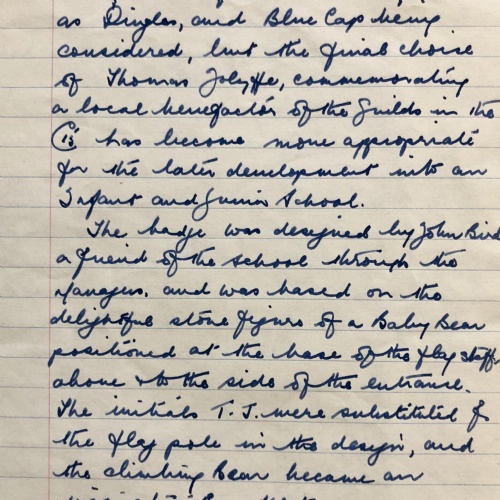 as Dingles, and Blue Cap being
considered, but the final choice
of Thomas Jolyffe, commemorating
a local benefactor of the Guilds in the
has become more appropriate
for the later development into an
Infant and Junior School.
The badge was designed by John Bird
a friend of the school through the
Managers. and was based on the
delightful stone figure of a Baby Bear
positioned at the base of the flag staff
above & to the side of the entrance.
The initials T.J. were substituted for
the flag pole in the design, and
the climbing Bear became an